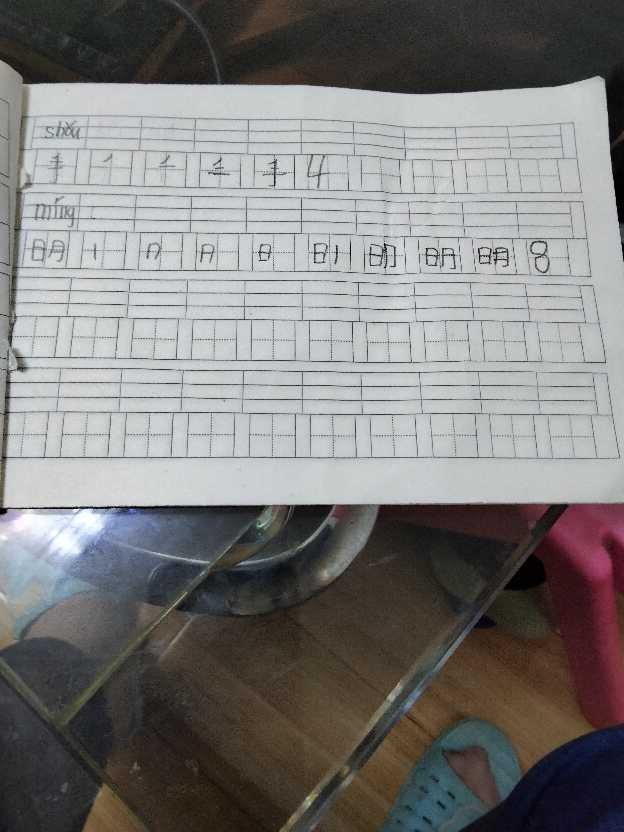 shǒu
手 一 二 三 手 4
míng
明 丨 冂 日 日 明 明 明 明 8